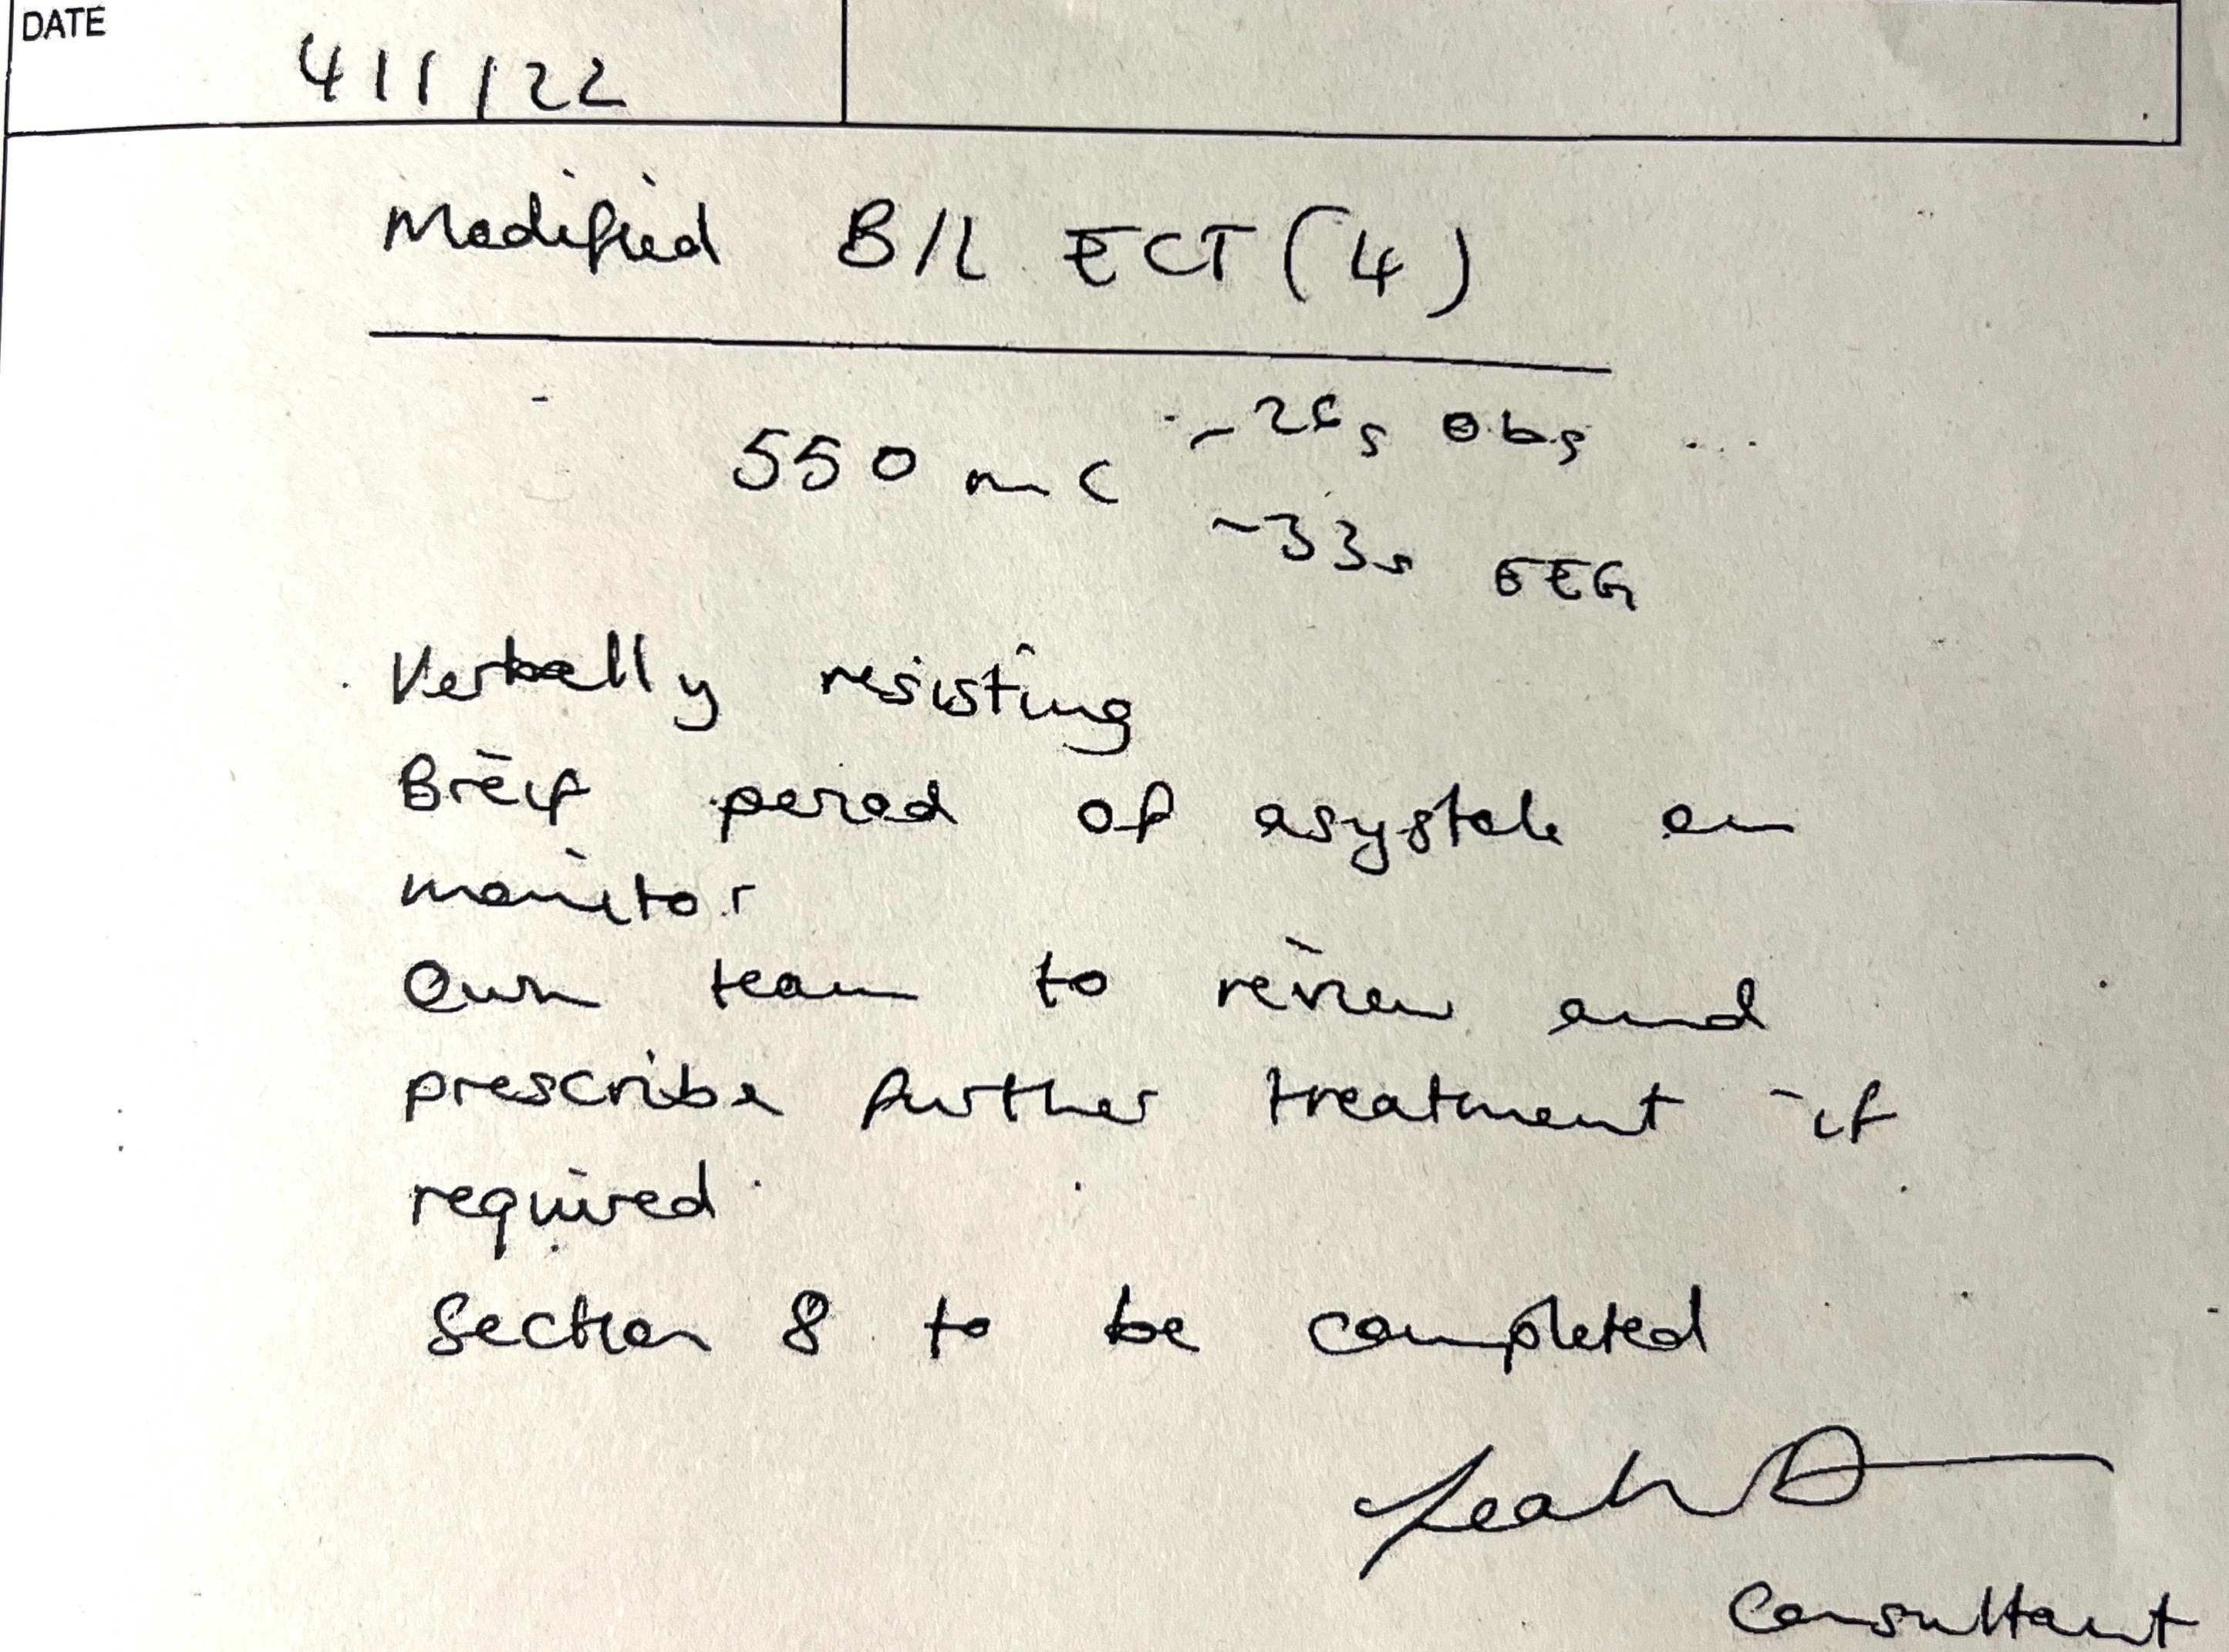 DATE
4/1/22
Modified B/L ECT (4)
550 mC - 26s Obs
~33s EEG
Verbally resisting
Breif period of asystole on
monitor
Own team to review and
prescribe further treatment if
required
Section 8 to be completed
Leah
Consultant